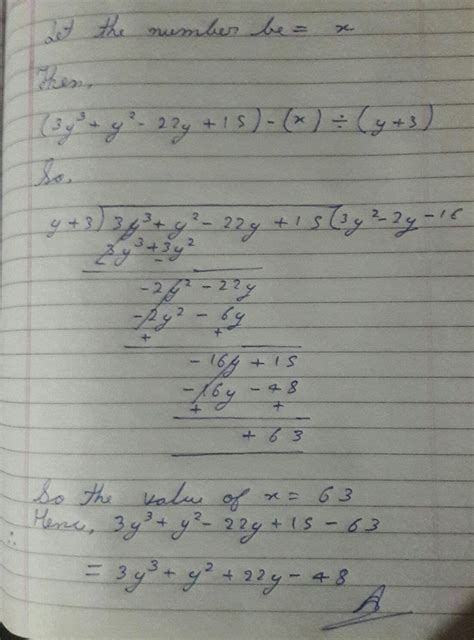 Let the number be = x
Then,
(3y³ + y² - 22y + 15) - (x) ÷ (y+3)
So,
y+3) 3y³ + y² - 22y + 15 (3y² - 2y - 16
3y³ + 3y²
-
-2y² - 22y
-2y² - 6y
+ +
-16y + 15
-16y - 48
+ +
+ 63
So the value of x = 63
Hence, 3y³ + y² - 22y + 15 - 63
∴
= 3y³ + y² + 22y - 48